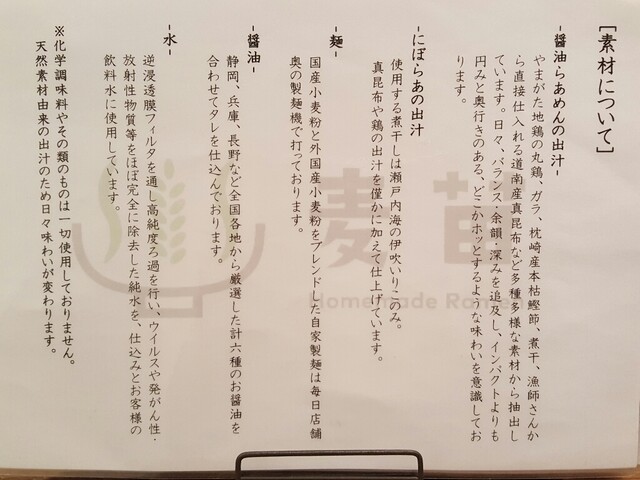 [素材について]
-醤油らあめんの出汁-
やまがた地鶏の丸鶏、ガラ、枕崎産本枯鰹節、煮干、漁師さんか
ら直接仕入れる道南産真昆布など多種多様な素材から抽出し
ています。日々、バランス・余韻・深みを追及し、インパクトよりも
円みと奥行きのある、どこかホッとするような味わいを意識してお
ります。
-にぼらあの出汁-
使用する煮干しは瀬戸内海の伊吹いりこのみ。
真昆布や鶏の出汁を僅かに加えて仕上げています。
-麺-
国産小麦粉と外国産小麦粉をブレンドした自家製麺は毎日店舗
奥の製麺機で打っております。
-醤油-
静岡、兵庫、長野など全国各地から厳選した計六種のお醤油を
合わせてタレを仕込んでおります。
-水-
逆浸透膜フィルタを通し高純度ろ過を行い、ウイルスや発がん性・
放射性物質等をほぼ完全に除去した純水を、仕込みとお客様の
飲料水に使用しています。
※化学調味料やその類のものは一切使用しておりません。
天然素材由来の出汁のため日々味わいが変わります。
麦苗
Homemade Ramen